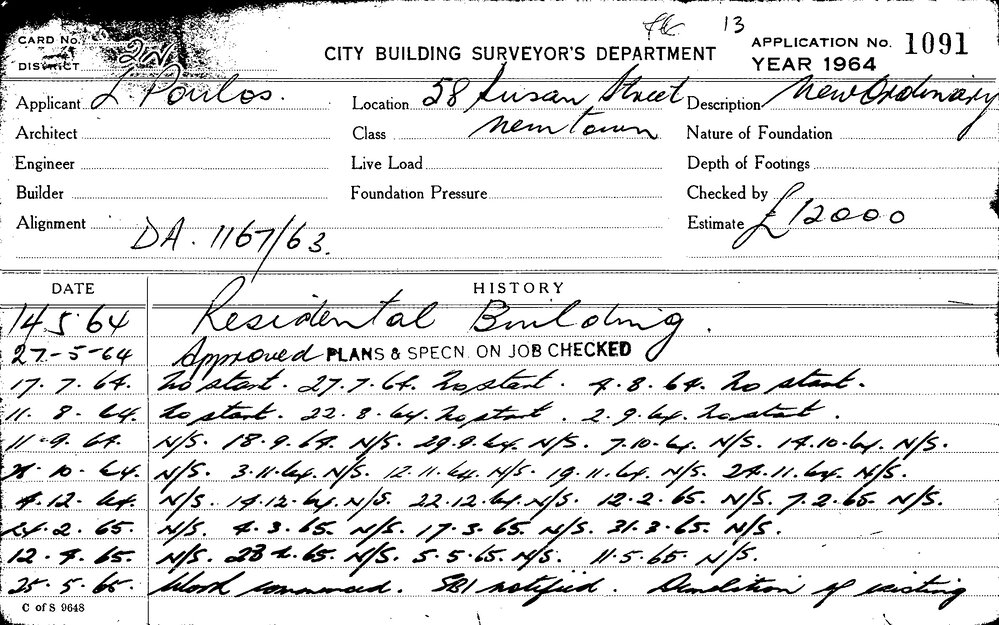 13
CARD No.
DISTRICT 2N
CITY BUILDING SURVEYOR'S DEPARTMENT
APPLICATION No. 1091
YEAR 1964
Applicant L. Poulos. Location 58 Susan Street Description New Ordinary
Architect Class Newtown Nature of Foundation
Engineer Live Load Depth of Footings
Builder Foundation Pressure Checked by
Alignment Estimate £12000
DA. 1167/63.
DATE HISTORY
14.5.64 Residental Building.
27-5-64 Approved PLANS & SPECN. ON JOB CHECKED
17.7.64. No start. 27.7.64. No start. 4.8.64. No start.
11. 8. 64. No start. 22.8.64. No start. 2.9.64. No start.
11-9.64. N/S. 18.9.64. N/S. 29.9.64. N/S. 7.10.64. N/S. 14.10.64. N/S.
10.64. N/S. 3.11.64. N/S. 12.11.64. N/S. 19.11.64. N/S. 24.11.64. N/S.
4.12.64. N/S. 14.12.64. N/S. 22.12.64. N/S. 12.2.65. N/S. 7.2.65. N/S.
24.2.65. N/S. 4.3.65. N/S. 17.3.65. N/S. 31.3.65. N/S.
12.4.65. N/S. 65. N/S. 5.5.65. N/S. 11.5.65 N/S.
25.5.65. Work commenced. SBI notified. Demolition of existing
C of S 9648